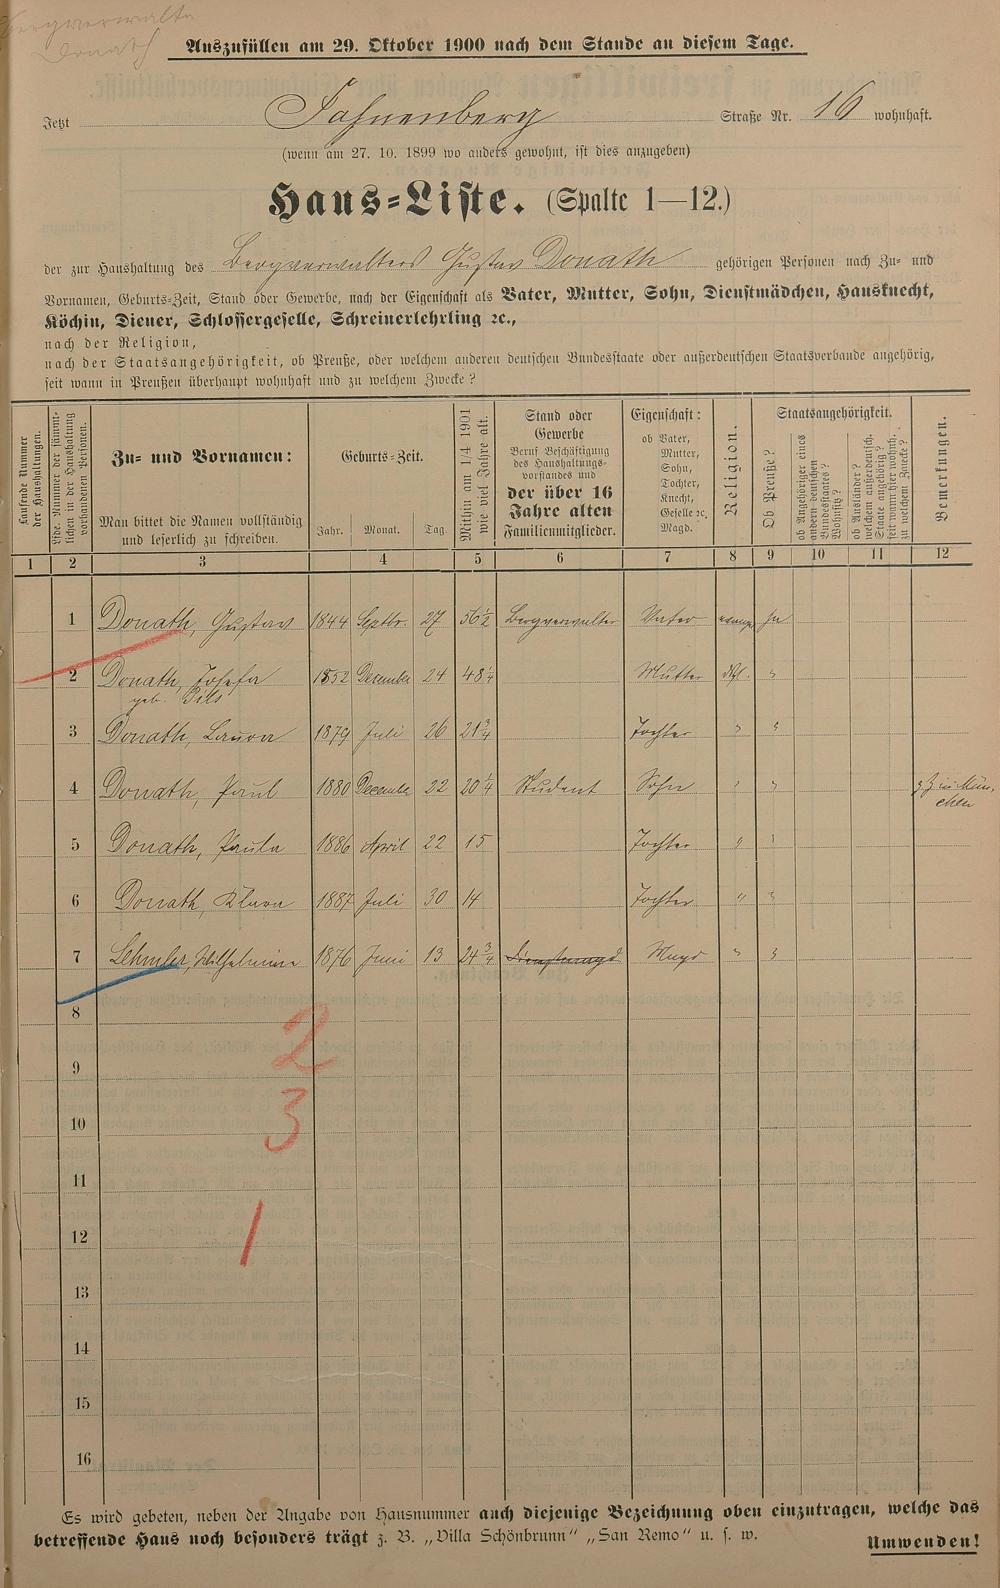 Bergverwalter
Donath
Auszufüllen am 29. Oktober 1900 nach dem Stande an diesem Tage.
Jetzt Fahnenberg Straße Nr. 16 wohnhaft.
(wenn am 27. 10. 1899 wo anders gewohnt, ist dies anzugeben)
Haus-Liste. (Spalte 1—12.)
der zur Haushaltung des Bergverwalters Gustav Donath gehörigen Personen nach Zu- und
Vornamen, Geburts-Zeit, Stand oder Gewerbe, nach der Eigenschaft als Vater, Mutter, Sohn, Dienstmädchen, Hausknecht,
Köchin, Diener, Schlossergeselle, Schreinerlehrling ꝛc.,
nach der Religion,
nach der Staatsangehörigkeit, ob Preuße, oder welchem anderen deutschen Bundesstaate oder außerdeutschen Staatsverbande angehörig,
seit wann in Preußen überhaupt wohnhaft und zu welchem Zwecke?
Laufende Nummer der Haushaltungen.
Lfde. Nummer der sämmtlichen in der Haushaltung vorhandenen Personen.
Zu- und Vornamen:
Man bittet die Namen vollständig
und leserlich zu schreiben.
Geburts-Zeit.
Jahr. Monat. Tag.
Mithin am 1/4 1901 wie viel Jahre alt.
Stand oder
Gewerbe
Beruf Beschäftigung
des Haushaltungs-
vorstandes und
der über 16
Jahre alten
Familienmitglieder.
Eigenschaft:
ob Vater,
Mutter,
Sohn,
Tochter,
Knecht,
Geselle ꝛc.
Magd.
Religion.
Staatsangehörigkeit.
Ob Preuße?
ob Angehöriger eines andern deutschen Bundesstaates? Wohnsitz?
ob Ausländer? welchem außerdeutsch. Staate angehörig? seit wann hier wohnh. zu welchem Zwecke?
Bemerkungen.
1 2 3 4 5 6 7 8 9 10 11 12
1 Donath, Gustav 1844 Septbr. 27 56½ Bergverwalter Vater evang. ja
2 Donath, Josefa 1852 December 24 48¼ Mutter kthl. "
geb. Pils
3 Donath, Laura 1879 Juli 26 21¾ Tochter " "
4 Donath, Paul 1880 December 22 20¼ Student Sohn " " z Z in Mün-
chen
5 Donath, Paula 1886 April 22 15 Tochter " "
6 Donath, Klara 1887 Juli 30 14 Tochter " "
7 Lehmler, Wilhelmine 1876 Juni 13 24¾ Dienstmagd Magd " "
8
2
9
3
10
11
1
12
13
14
15
16
Es wird gebeten, neben der Angabe von Hausnummer auch diejenige Bezeichnung oben einzutragen, welche das
betreffende Haus noch besonders trägt z. B. „Villa Schönbrunn" „San Remo" u. s. w.
Umwenden!